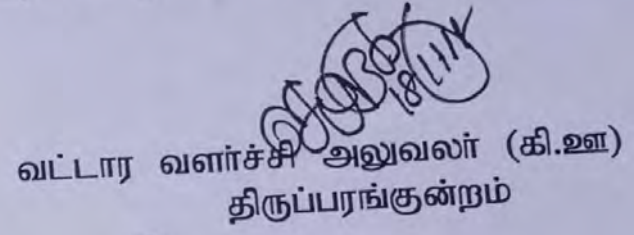 வட்டார வளர்ச்சி அலுவலர் (கி.ஊ)
திருப்பரங்குன்றம்